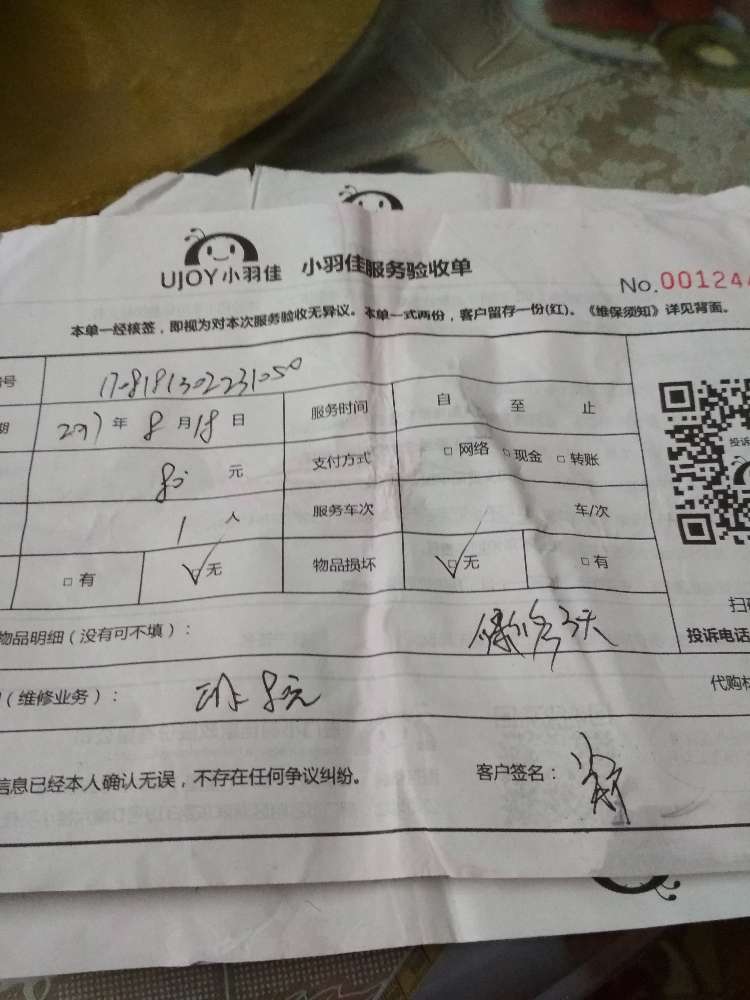 UJOY小羽佳 小羽佳服务验收单
No.00124
本单一经核签，即视为对本次服务验收无异议。本单一式两份，客户留存一份(红)。《维保须知》详见背面。
号 1708181302231050
期 2017年8月18日 服务时间 自 至 止
80元 支付方式 □网络 □现金 □转账
1人 服务车次 车/次
□有 □无 物品损坏 □无 □有
扫
物品明细（没有可不填）： 保修3天
投诉电话
（维修业务）：
代购材
信息已经本人确认无误，不存在任何争议纠纷。 客户签名：
投诉